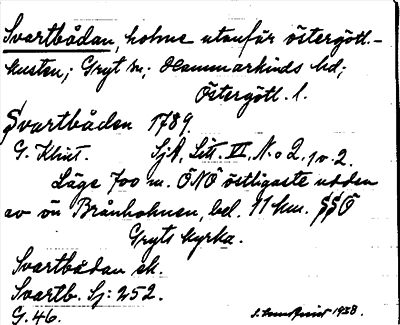 Svartbådan, holme utanför östergötl.-
kusten; Gryt sn; Hammarkinds hd;
Östergötl. l.
Svartbåden 1789.
G. Klint. SjA, Litt. VI. N:o 2, 1 o. 2.
Läge 700 m. ÖNÖ östligaste udden
av ön Brånholmen, bel. 11 km. SSÖ
Gryts kyrka.
Svartbådan ek.
Svartb. Sj: 252.
G. 46. 1938.